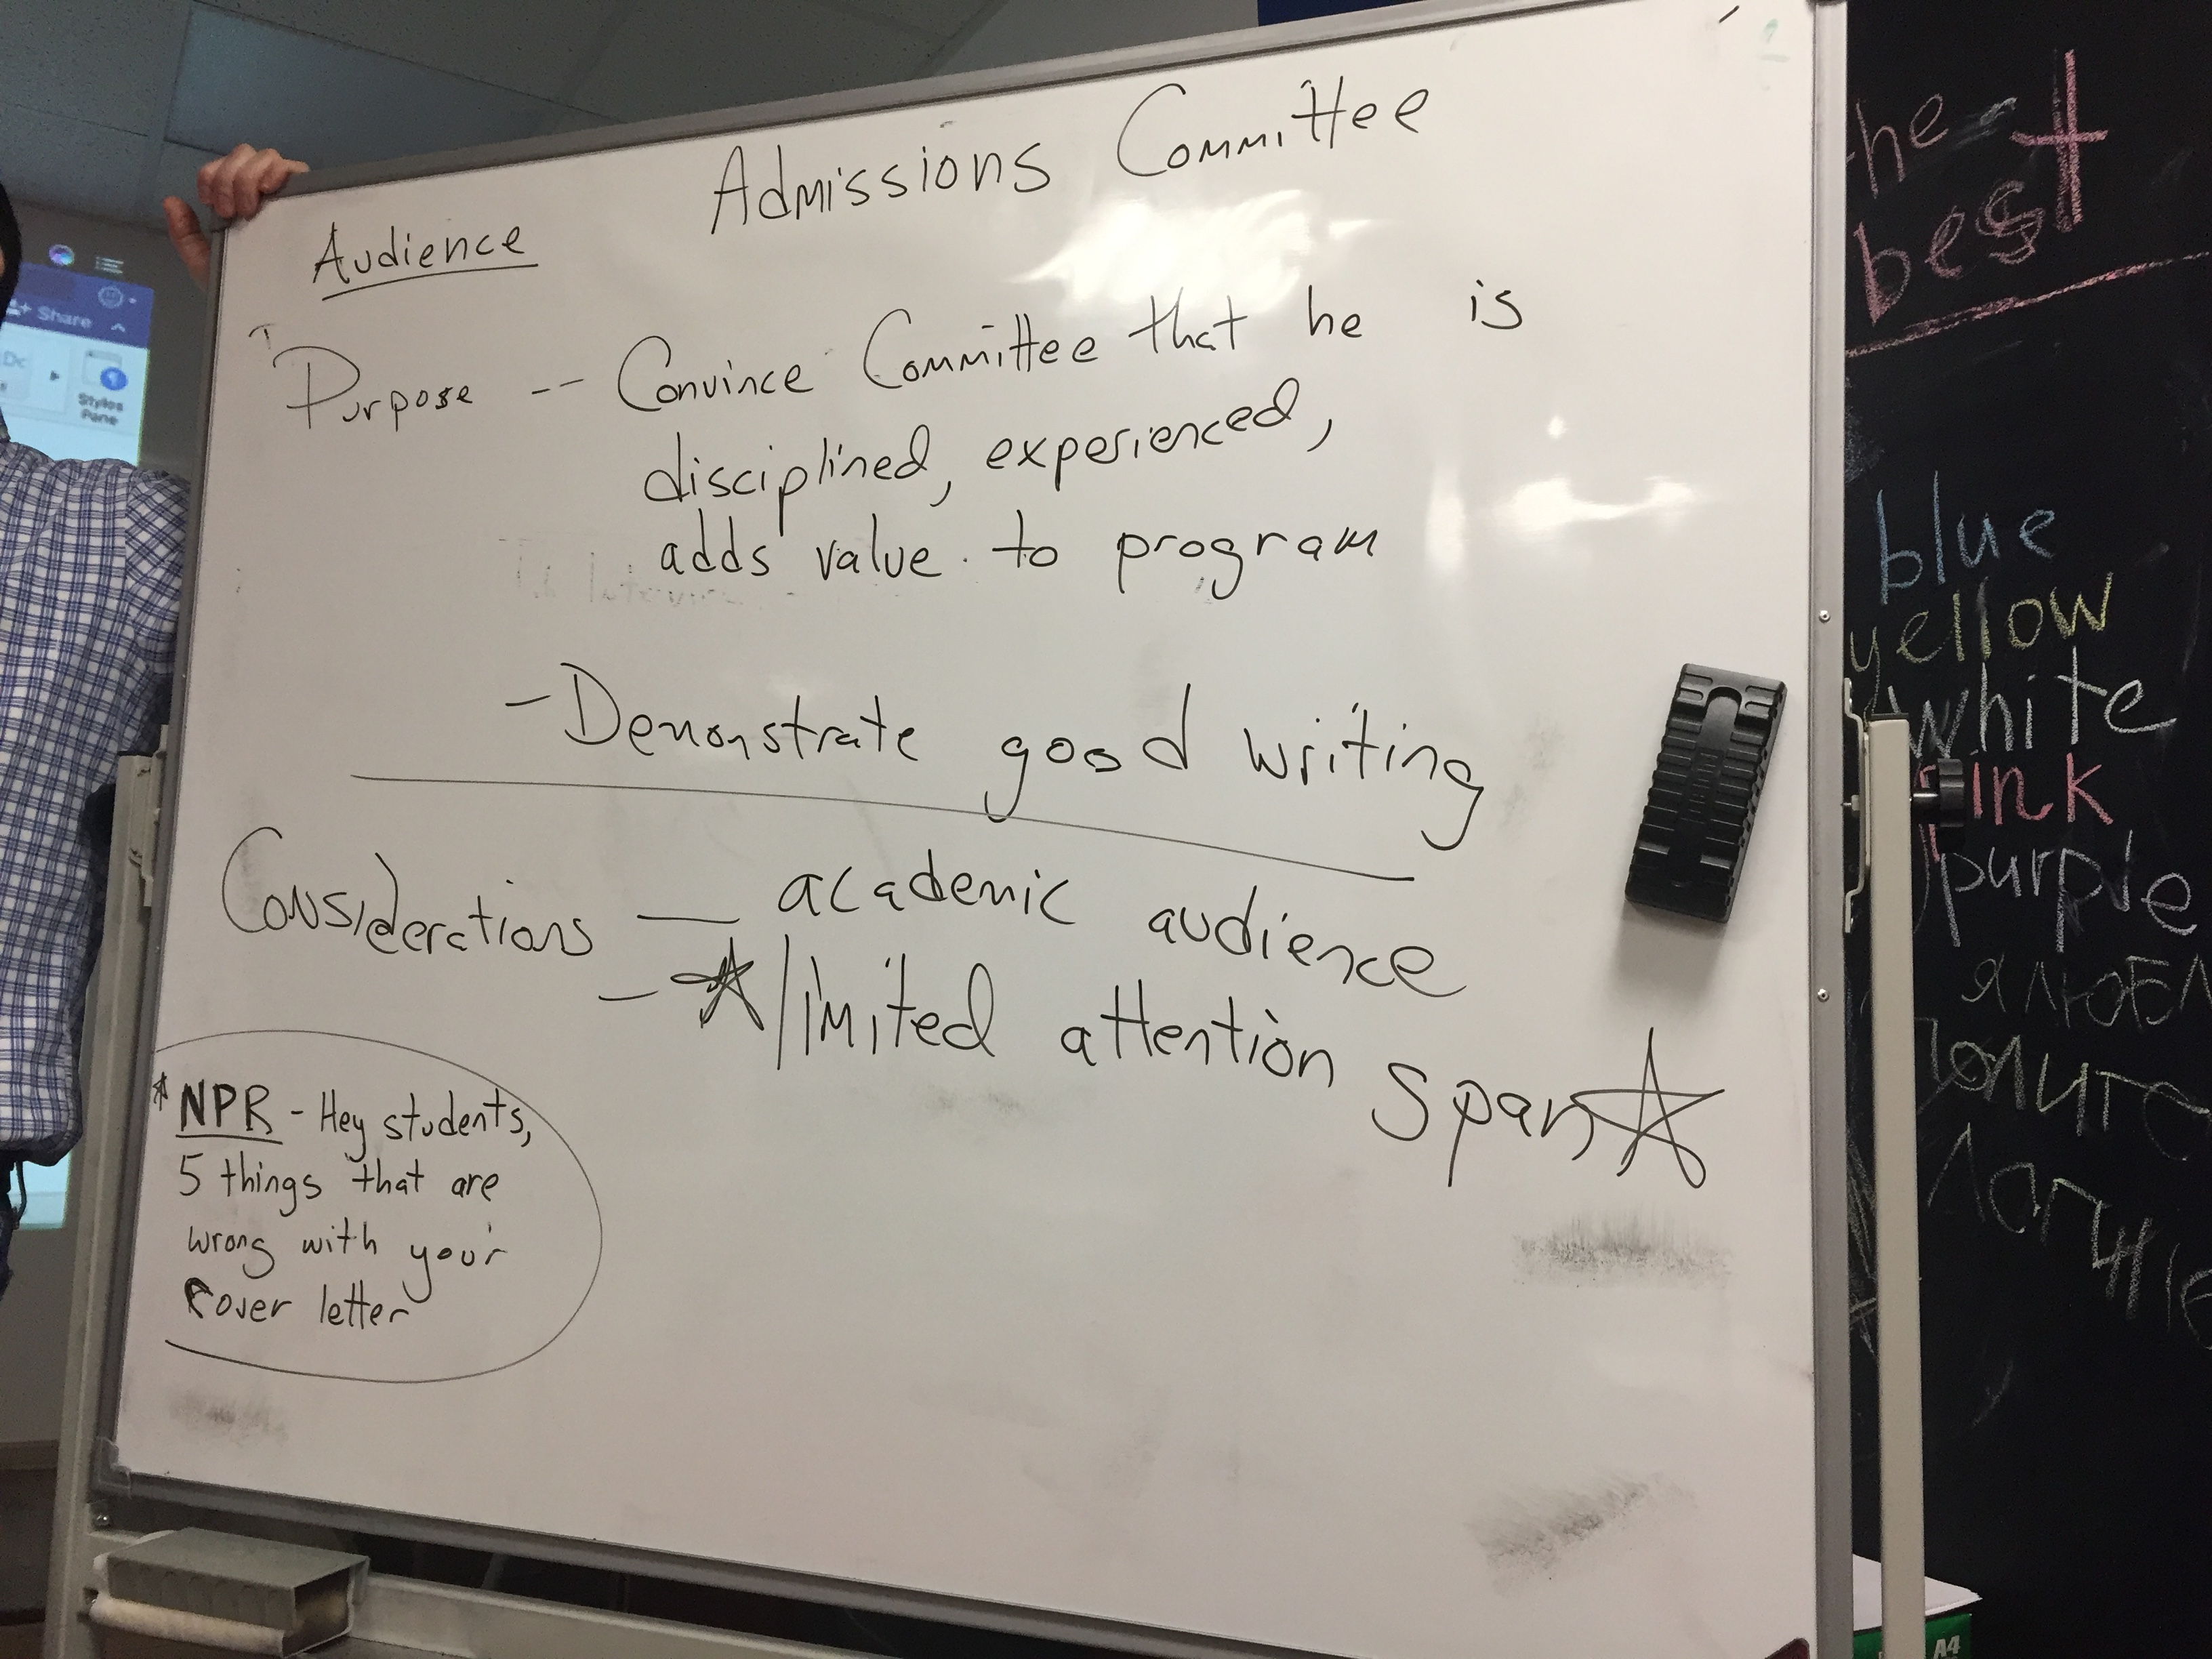 Admissions Committee
Audience
Purpose -- Convince Committee that he is
disciplined, experienced,
adds value to program
- Demonstrate good writing
Considerations — academic audience
— ☆ limited attention span ☆
* NPR - Hey students,
5 things that are
wrong with your
cover letter
Share
Styles
Pane
the
best
blue
yellow
white
pink
purple
A4